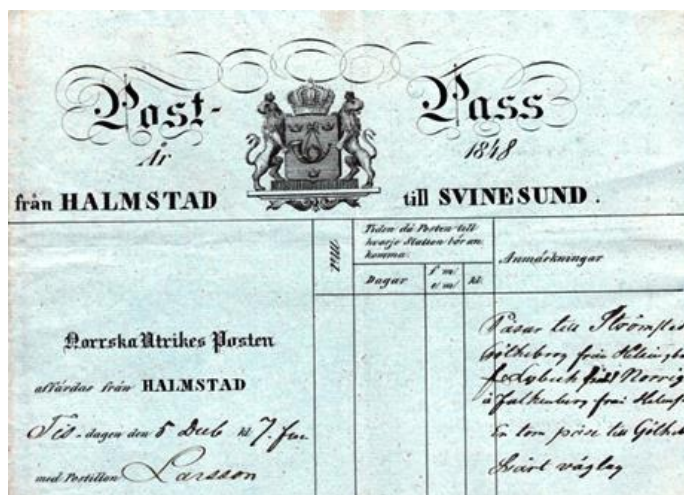 Post- Pass
År 1848
från HALMSTAD till SVINESUND.
Mil
Tiden då Posten till
hvarje Station bör an-
komma.
Dagar
f m/
e/m/
kl.
Anmärkningar
Norrska Utrikes Posten
affärdas från HALMSTAD
Tis-dagen den 5 Decb kl 7. fm
med Postillon Larsson
Påsar till Strömstad
Götheborg från Helsingb
fr Lybeck Norrig
à Falkenberg från Helms
En tom påse till Götheb
Svårt väglag